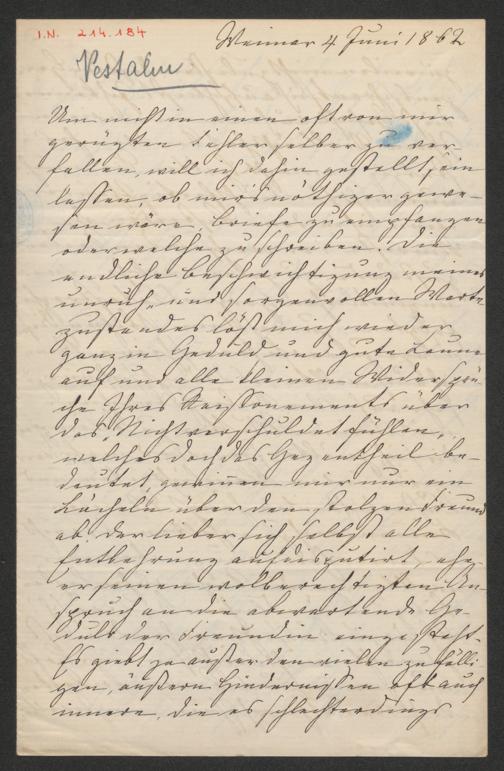 I.N. 214.184
Weimar 4 Juni 1862
Um nicht in einen oft von mir
gerügten Fehler selber zu ver
fallen, will ich dahin gestellt sein
lassen, ob mirs nöthiger gewe-
sen wäre Briefe zu empfangen
oder welche zu schreiben. Die
endliche Beschwichtigung meines
unruh- und sorgenvollen Warte
zustandes löst mich wieder
ganz in Geduld und gute Laune
auf und alle kleinen Widersprü
che Ihres Raisonnements über
das „Nichtverschuldet fühlen,
welches doch das Gegentheil be-
deutet, gewinnen mir nur ein
Lächeln über den stolzen Freund
ab, der lieber sich selbst alle
Entbehrung aufdisputirt, ehe
er seinen wolberechtigten An-
spruch an die abwartende Ge-
duld der Freundin eingesteht.
Es giebt ja außer den vielen zufälli
gen, äußern Hindernissen oft auch
innere, die es schlechterdings